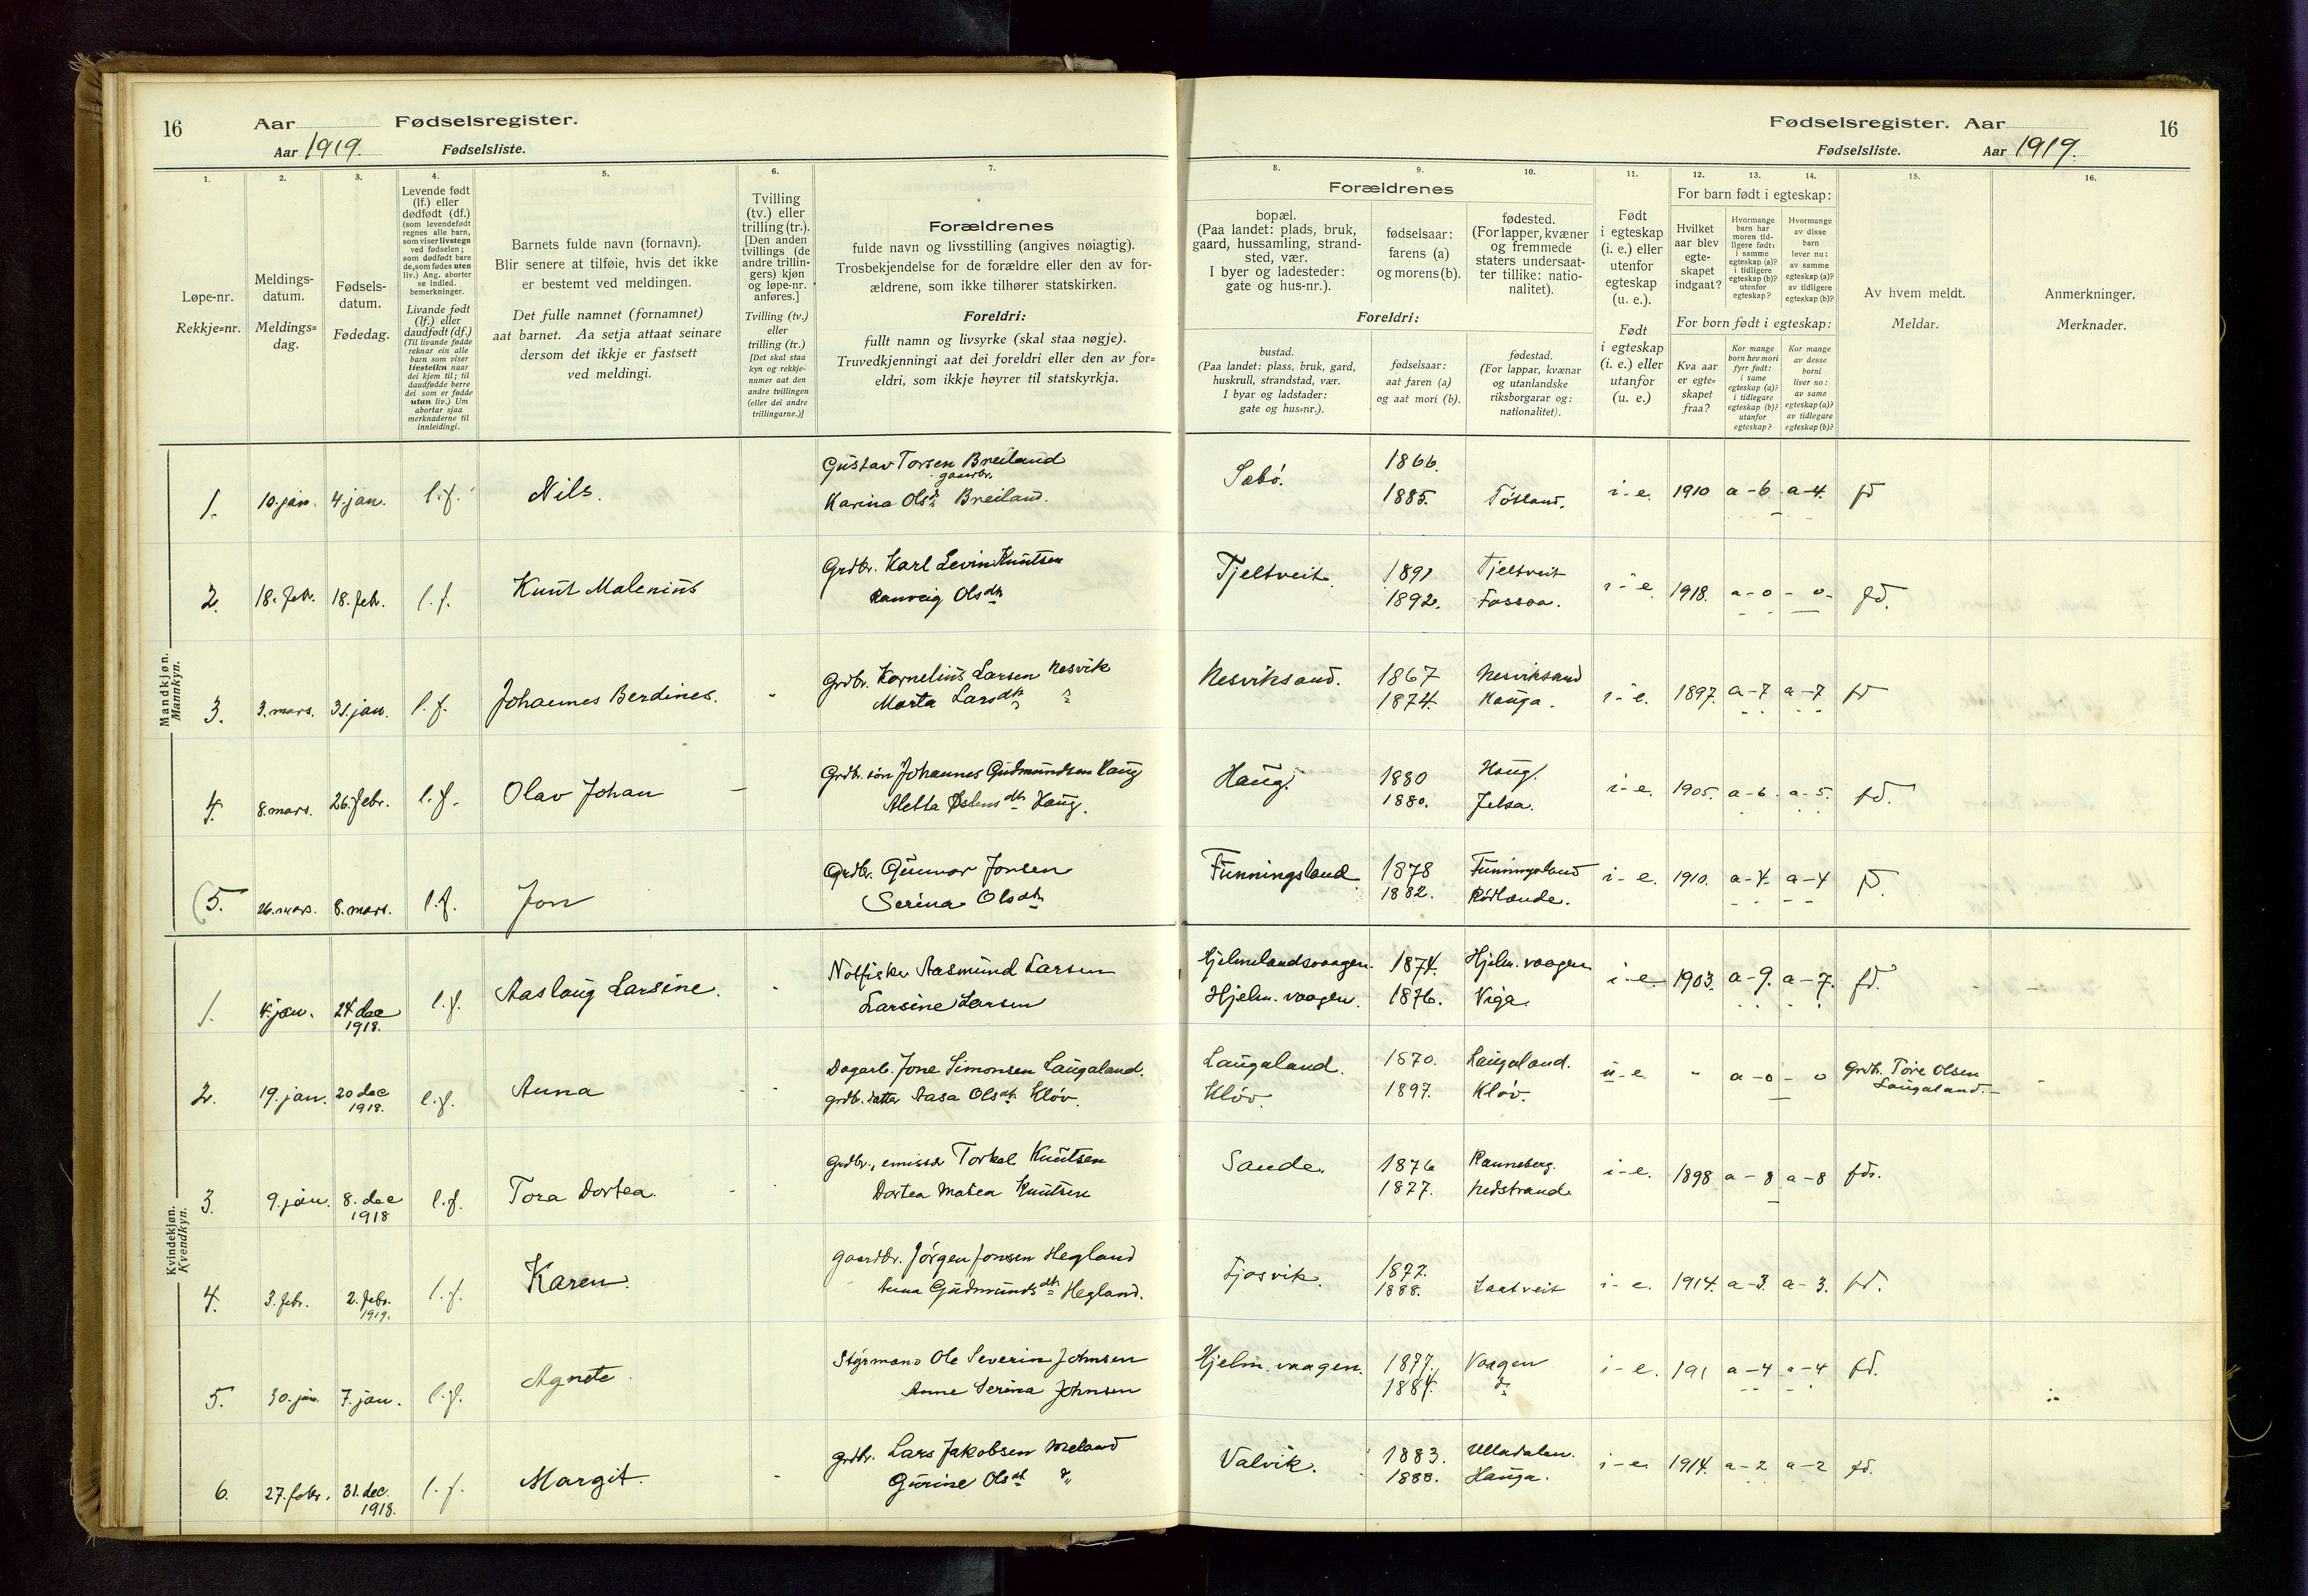 16 Aar Fødselsregister.
Aar 1919. Fødselsliste.
Fødselsregister. Aar 16
Fødselsliste. Aar 1919.
1. 2. 3. 4. 5. 6. 7. 8. 9. 10. 11. 12. 13. 14. 15. 16.
Løpe-nr.
Rekkje=nr.
Meldings-
datum.
Meldings=
dag.
Fødsels-
datum.
Fødedag.
Levende født
(lf.) eller
dødfødt (df.)
(som levendefødt
regnes alle barn,
som viser livstegn
ved fødselen;
som dødfødt bare
de, som fødes uten
liv.) Ang. aborter
se indled.
bemerkninger.
Livande født
(lf.) eller
daudfødt (df.)
(Til livande fødde
reknar ein alle
barn som viser
livsteikn naar
dei kjem til; til
daudfødde berre
dei som er fødde
utan liv.) Um
abortar sjaa
merknaderne til
innleidingi.
Barnets fulde navn (fornavn).
Blir senere at tilføie, hvis det ikke
er bestemt ved meldingen.
Det fulle namnet (fornamnet)
aat barnet. Aa setja attaat seinare
dersom det ikkje er fastsett
ved meldingi.
Tvilling
(tv.) eller
trilling (tr.).
[Den anden
tvillings (de
andre trillin-
gers) kjøn
og løpe-nr.
anføres.]
Tvilling (tv.)
eller
trilling (tr.)
[Det skal staa
kyn og rekkje-
numer aat den
andre tvillingen
(eller dei andre
trillingarne.)]
Forældrenes
fulde navn og livsstilling (angives nøiagtig).
Trosbekjendelse for de forældre eller den av for-
ældrene, som ikke tilhører statskirken.
Foreldri:
fullt namn og livsyrke (skal staa nøgje).
Truvedkjenningi aat dei foreldri eller den av for=
eldri, som ikkje høyrer til statskyrkja.
Forældrenes
bopæl.
(Paa landet: plads, bruk,
gaard, hussamling, strand-
sted, vær.
I byer og ladesteder:
gate og hus-nr.).
fødselsaar:
farens (a)
og morens (b).
fødested.
(For lapper, kvæner
og fremmede
staters undersaat-
ter tillike: natio-
nalitet).
Foreldri:
bustad.
(Paa landet: plass, bruk, gard,
huskrull, strandstad, vær.
I byar og ladstader:
gate og hus=nr.).
fødselsaar:
aat faren (a)
og aat mori (b).
fødestad.
(For lappar, kvænar
og utanlandske
riksborgarar og:
nationalitet).
Født
i egteskap
(i. e.) eller
utenfor
egteskap
(u. e.).
Født
i egteskap
(i. e.) eller
utanfor
(u. e.)
For barn født i egteskap:
Hvilket
aar blev
egte-
skapet
indgaat?
Hvormange
barn har
moren tid-
ligere født:
i samme
egteskap (a)?
i tidligere
egteskap (b)?
utenfor
egteskap?
Hvormange
av disse
barn
lever nu:
av samme
egteskap (a)?
av tidligere
egteskap (b)?
For born født i egteskap:
Kva aar
er egte=
skapet
fraa?
Kor mange
born hev mori
fyrr født:
i same
egteskap (a)?
i tidlegare
egteskap (b)?
utanfor
egteskap?
Kor mange
av desse
borni
liver no:
av same
egteskap (a)?
av tidlegare
egteskap (b)?
Av hvem meldt.
Meldar.
Anmerkninger.
Merknader.
Mandkjøn.
Mannkyn.
1. 10. jan. 4. jan. l.f. Nils. Gustav Torsen Breiland gaardbr. Sæbø. 1866.
Karina Olsdt Breiland. 1885. Tøtland. i-e. 1910 a-6 a-4. fd
2. 18. febr. 18. feb. l.f. Knut Malenius Grdbr. Karl Levin Knutsen Tjeltveit. 1891 Tjeltveit
Ranveig Olsdtr 1892. Fossaa. i-e. 1918. a-o - o- fd.
3. 3. mars. 31. jan. l.f. Johannes Berdines. Grdbr. Kornelius Larsen Nesvik Nesviksand. 1867 Nesviksand
Marta Larsdtr " 1874. Hauga. i-e. 1897. a-7 a-7 fd
4. 8. mars. 26. febr. l.f. Olav Johan Grdb. søn Johannes Gudmundsen Haug Haug. 1880 Haug.
Aletta Østensdtr Haug. 1880. Jelsa. i-e. 1905. a-6. a-5. fd.
5. 26. mars. 8. mars. l.f. Jon Grdbr. Gunnar Jonsen Funningsland 1878 Funningsland
Serina Olsdtr 1882. i-e. 1910. a-4. a-4 fd.
Kvindekjøn.
Kvendkyn.
1. 4. jan. 24 dec 1918. l.f. Aaslaug Larsine. Notfisker Aasmund Larsen Hjelmelandsvaagen. 1874. Hjelm. vaagen
Larsine Larsen Hjelm. vaagen. 1876. Viga. i-e 1903. a-9. a-7. fd.
2. 19. jan. 20 dec 1918. l.f. Anna Dagarb. Jone Simonsen Laugaland. Laugaland. 1870. Laugaland.
grdb. datter Aasa Olsdtr Kløv. Kløv. 1897. Kløv. u-e. " a-o - o Grdb. Tore Olsen
Laugaland.
3. 9. jan. 8. dec 1918 l.f. Tora Dortea. Grdbr., emissær Torkel Knutsen Sande. 1876 Ranneberg.
Dortea Matea Knutsen 1877. Nedstrand. i-e. 1898 a-8 a-8 fdr.
4. 3. febr. 2. febr. 1919. l.f. Karen. gaardbr. Jørgen Jonsen Hegland Tjosvik. 1877.
Anna Gudmundsdtr Hegland. 1888. Laatveit i-e. 1914. a-3. a-3. fd.
5. 30. jan. 7. jan. l.f. Agnete. Styrmand Ole Severin Johnsen Hjelm. vaagen. 1877. Vaagen
Anne Serina Johnsen 1884. do i-e. 191 a-4 a-4 fd.
6. 27. febr. 31. dec. 1918. l.f. Margit. grdbr. Lars Jakobsen Meland Valvik. 1883. Ulladalen.
Gurine Olsdt " 1888. Hauga. i-e 1914. a-2 a-2 fd.